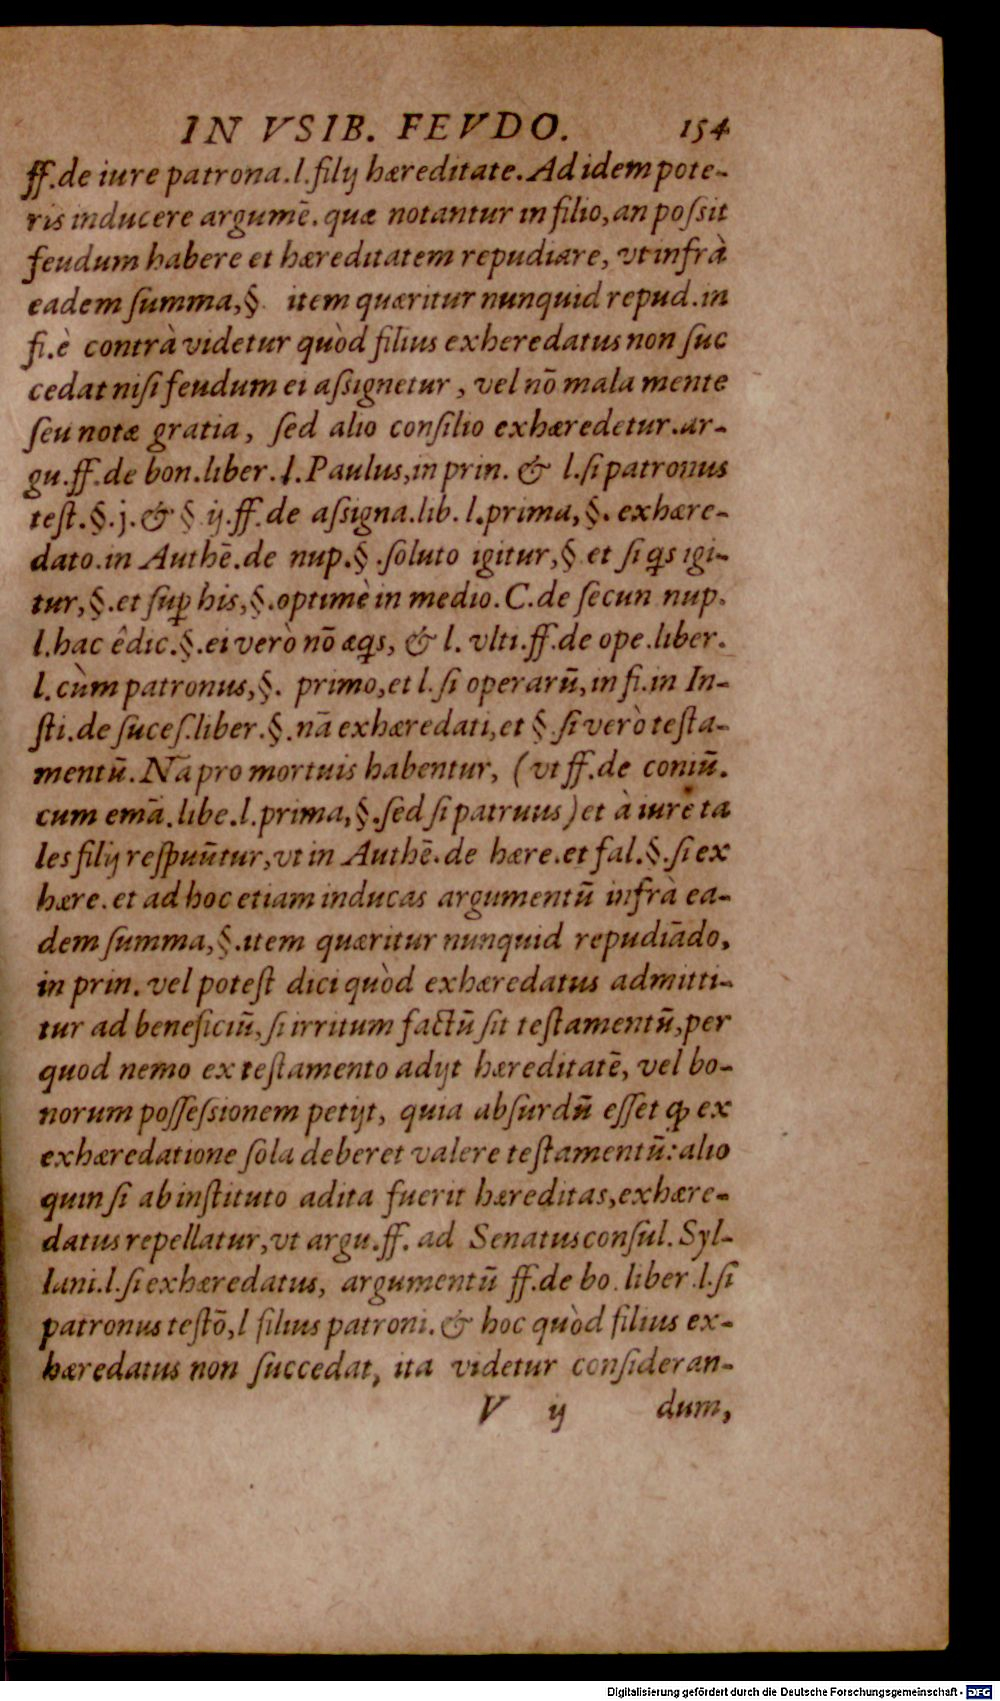 IN VSIB. FEVDO. 154
ff.de iure patrona.l.filij hæreditate.Ad idem pote-
ris inducere argumē.quæ notantur in filio,an poſsit
feudum habere et hæreditatem repudiare, vt infrà
eadem ſumma,§. item quæritur nunquid repud.in
fi.è contrà videtur quòd filius exheredatus non ſuc
cedat niſi feudum ei aſsignetur, vel nō mala mente
ſeu notæ gratia, ſed alio conſilio exhæredetur.ar-
gu.ff.de bon.liber.l.Paulus,in prin. & l.ſi patronus
teſt.§.j.& § ij.ff.de aſsigna.lib.l.prima,§.exhære-
dato.in Authē.de nup.§.ſoluto igitur,§ et ſi qs igi-
tur,§.et ſuꝑ his,§.optimè in medio.C.de ſecun nup.
l.hac êdic.§.ei verò nō æqs, & l. vlti.ff.de ope.liber.
l.cùm patronus,§. primo,et l.ſi operarū,in fi.in In-
ſti.de ſuceſ.liber.§.nā exhæredati,et § ſi verò teſta-
mentū.Nā pro mortuis habentur, (vt ff.de coniū.
cum emā.libe.l.prima,§.ſed ſi patruus)et à iure ta
les filij reſpuūtur,vt in Authē.de hære.et fal.§.ſi ex
hære.et ad hoc etiam inducas argumentū infrà ea-
dem ſumma,§.item quæritur nunquid repudiādo,
in prin.vel poteſt dici quòd exhæredatus admitti-
tur ad beneficiū,ſi irritum factū ſit teſtamentū,per
quod nemo ex teſtamento adijt hæreditatē, vel bo-
norum poſſeſsionem petijt, quia abſurdū eſſet ꝙ ex
exhæredatione ſola deberet valere teſtamentū:alio
quin ſi ab inſtituto adita fuerit hæreditas,exhære-
datus repellatur,vt argu.ff. ad Senatusconſul.Syl-
lani.l.ſi exhæredatus, argumentū ff.de bo.liber.l.ſi
patronus teſtō,l filius patroni.& hoc quòd filius ex-
hæredatus non ſuccedat, ita videtur conſideran-
V ij dum,
Digitalisierung gefördert durch die Deutsche Forschungsgemeinschaft - DFG